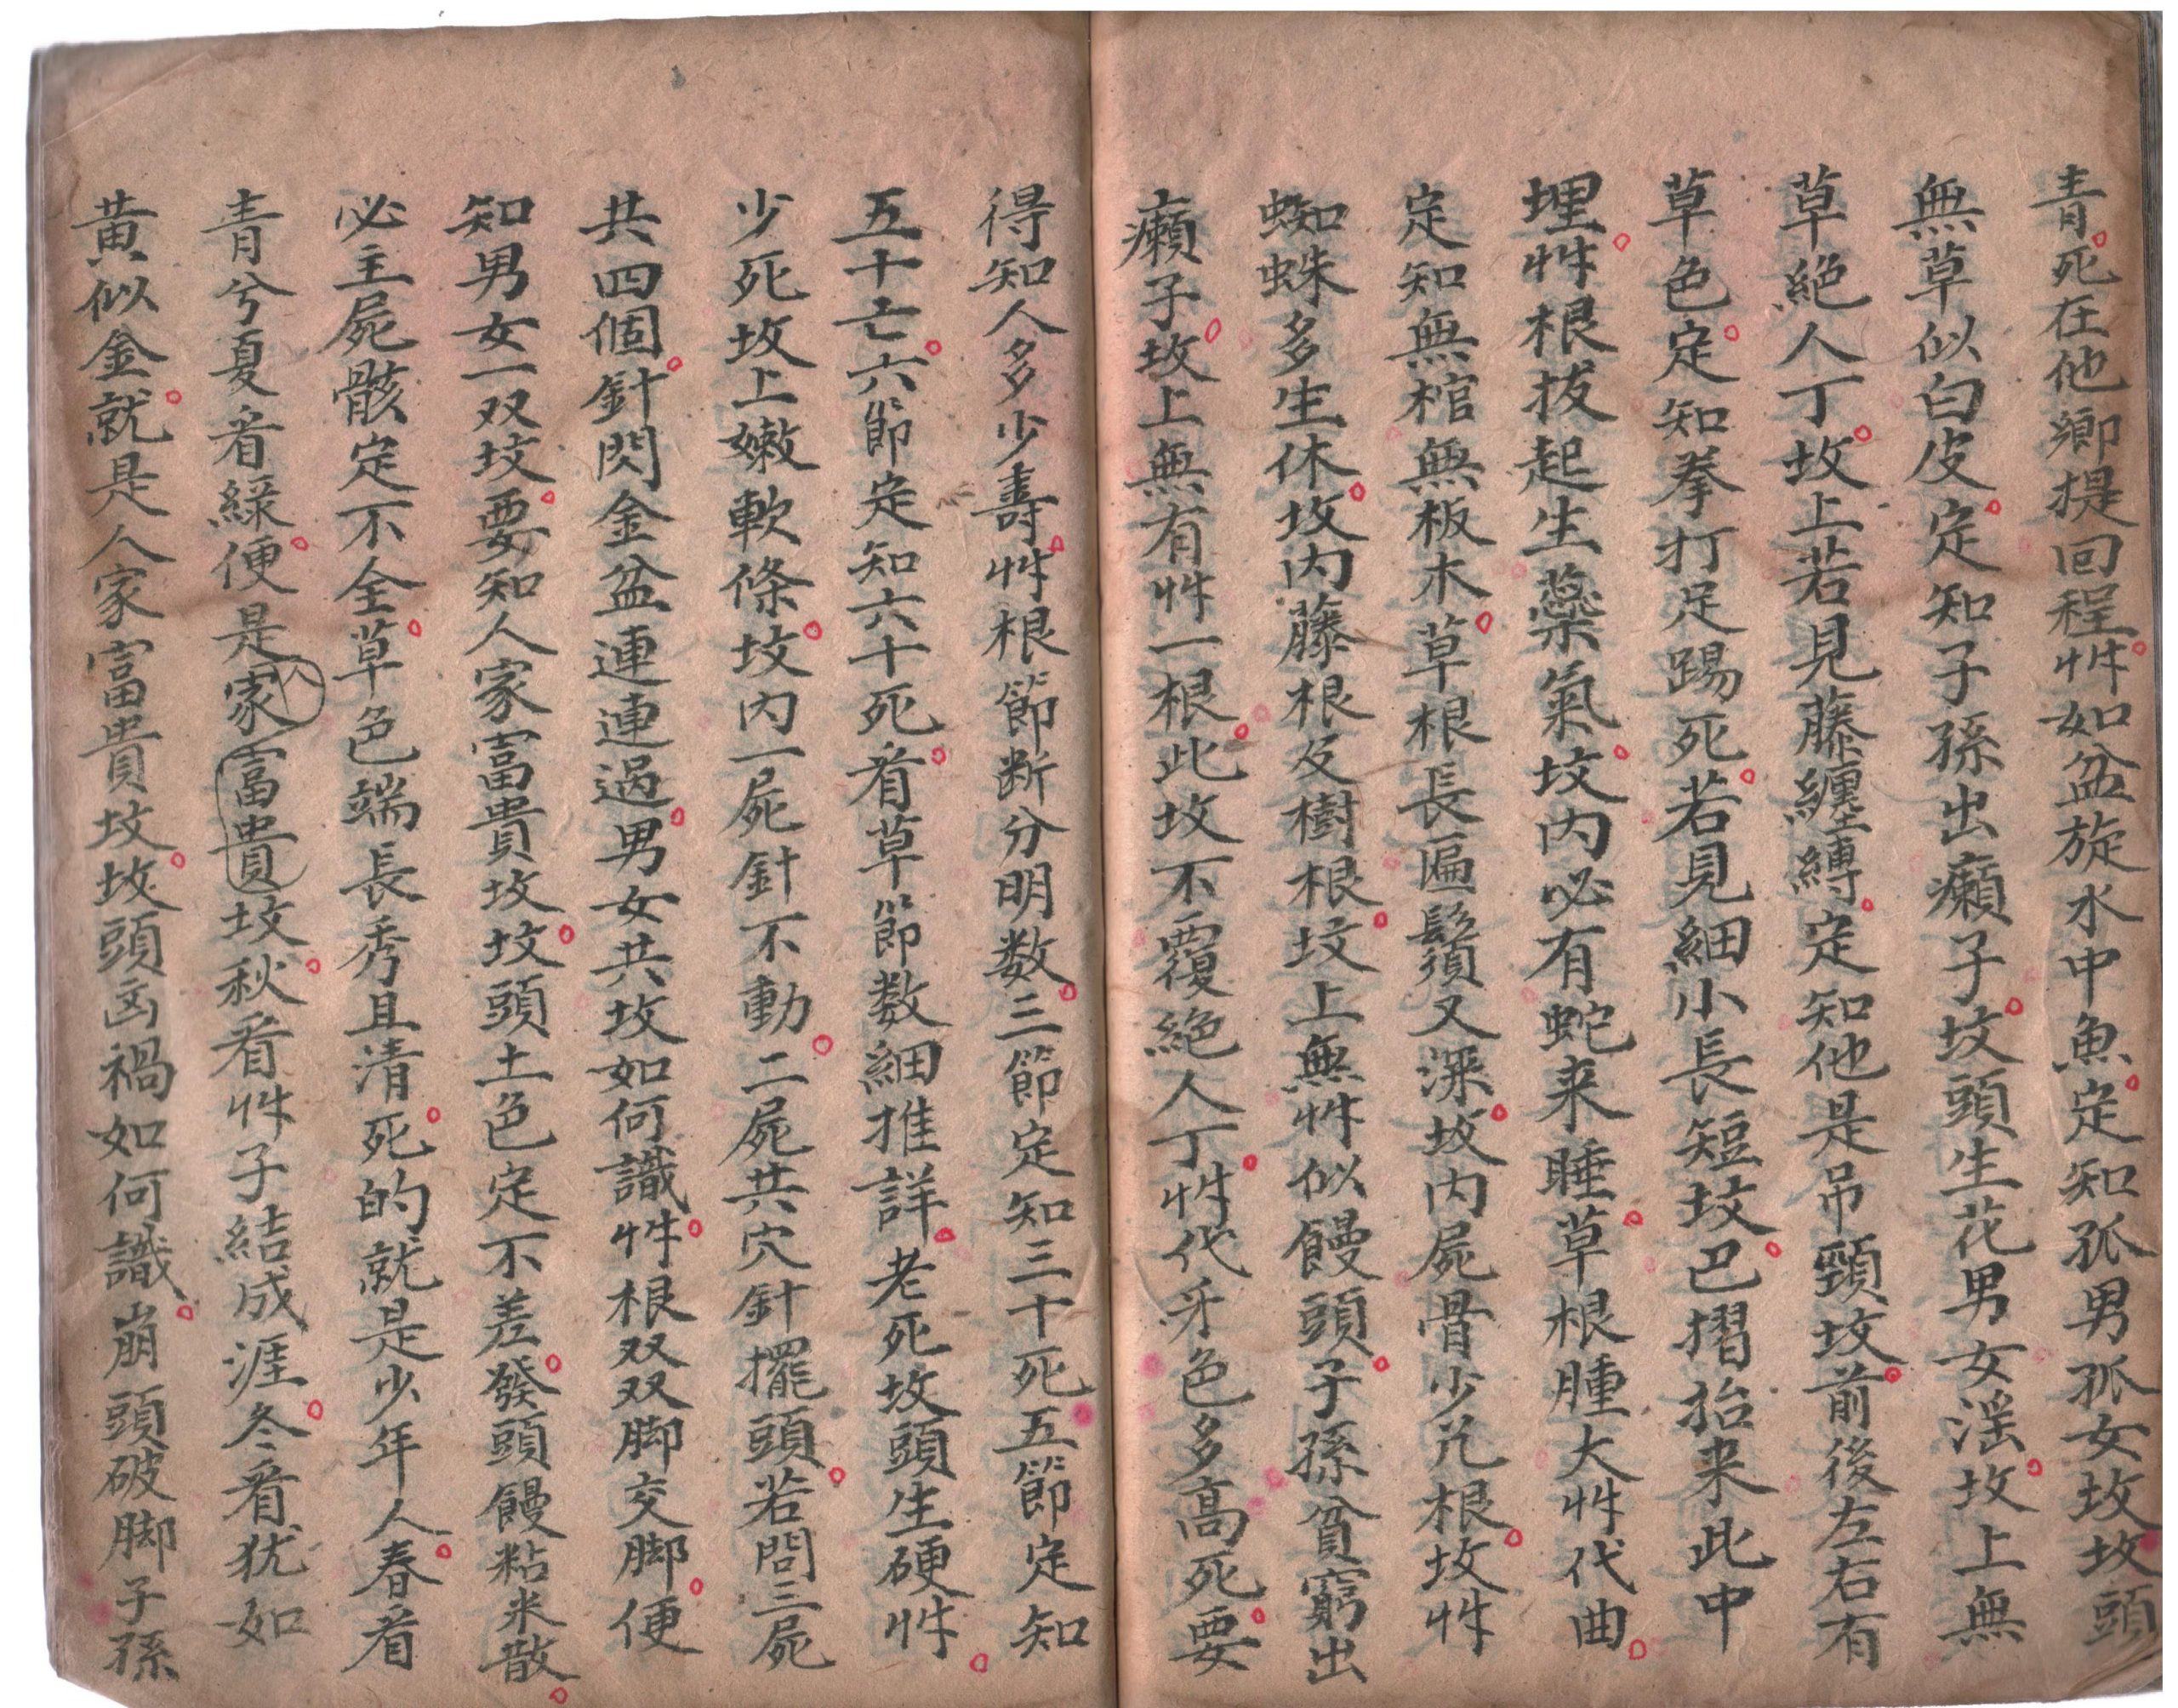 青死在他鄉提回程艸如盆旋水中魚定知孤男孤女坟坟頭
無草似白皮定知子孫出癩子坟頭生花男女淫坟上無
草絕人丁坟上若見藤纏縛定知他是吊頸坟前後左右有
草色定知拳打足踢死若見細小長短坟巴摺抬来此中
埋艸根拔起生藥氣坟内必有蛇来睡草根腫大艸代曲
定知無棺無板木草根長匾鬚又深坟内屍骨少兀根坟艸
蜘蛛多生休坟内藤根及樹根坟上無艸似饅頭子孫貧窮出
癩子坟上無有艸一根此坟不覆絕人丁艸代牙色多高死要
得知人多少壽艸根節断分明数三節定知三十死五節定知
五十亡六節定知六十死看草節数細推詳老死坟頭生硬艸
少死坟上嫩軟條坟内一屍針不動二屍共穴針擺頭若問三屍
共四個針閃金盆連連過男女共坟如何識艸根双双脚交脚便
知男女一双坟要知人家富貴坟坟頭土色定不差發頭饅粘米散
必主屍骸定不全草色端長秀且清死的就是少年人春看
青兮夏看綠便是人家富貴坟秋看艸子結成涯冬看犹如
黄似金就是人家富貴坟坟頭凶禍如何識崩頭破脚子孫